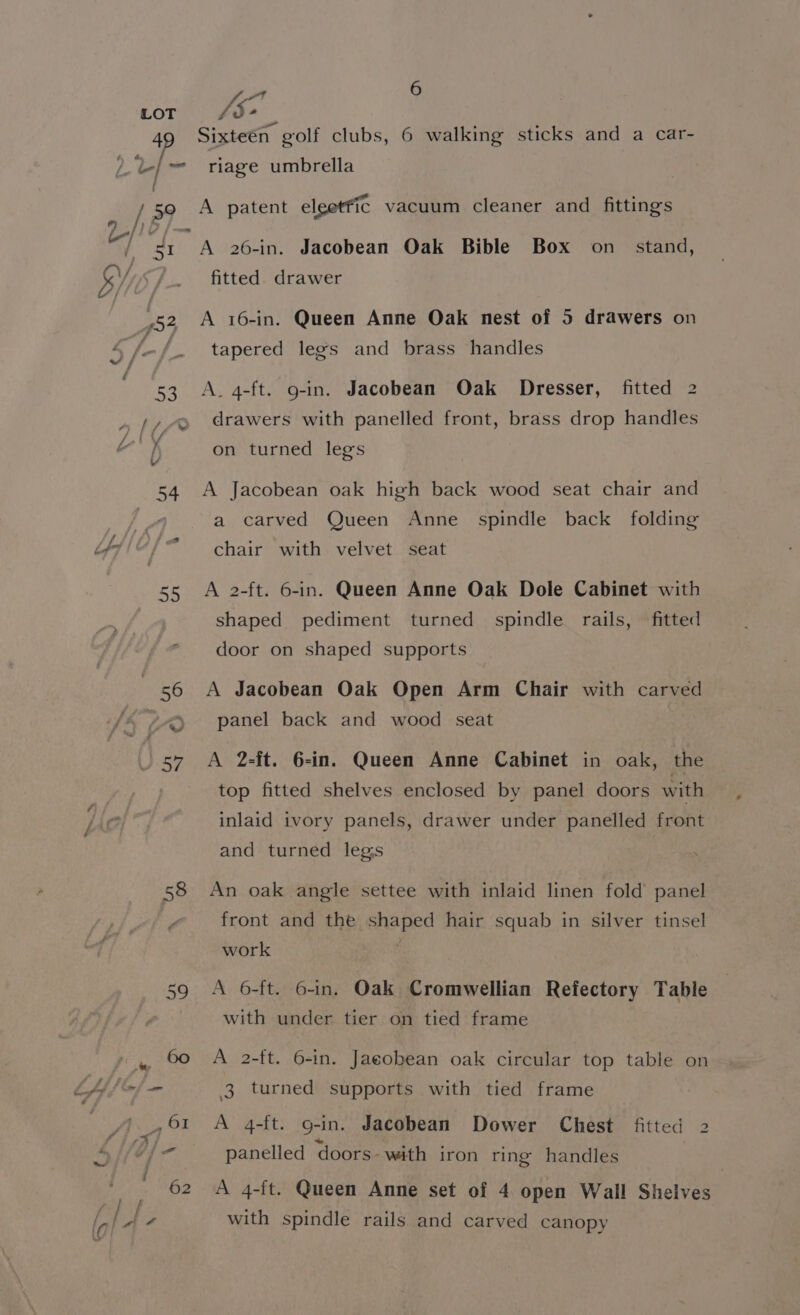 6
LOT
49 Sixteen golf clubs, 6 walking sticks and a car-
riage umbrella
50 A patent electric vacuum cleaner and fittings
51 A 26-in. Jacobean Oak Bible Box on stand,
fitted drawer
52 A 16-in. Queen Anne Oak nest of 5 drawers on
tapered legs and brass handles
53 A 4-ft. 9-in. Jacobean Oak Dresser, fitted 2
drawers with panelled front, brass drop handles
on turned legs
54 A Jacobean oak high back wood seat chair and
a carved Queen Anne spindle back folding
chair with velvet seat
55 A 2-ft. 6-in. Queen Anne Oak Dole Cabinet with
shaped pediment turned spindle rails, fitted
door on shaped supports
56 A Jacobean Oak Open Arm Chair with carved
panel back and wood seat
57 A 2-ft. 6-in. Queen Anne Cabinet in oak, the
top fitted shelves enclosed by panel doors with
inlaid ivory panels, drawer under panelled front
and turned legs
58 An oak angle settee with inlaid linen fold panel
front and the shaped hair squab in silver tinsel
work
59 A 6-ft. 6-in. Oak Cromwellian Refectory Table
with under tier on tied frame
60 A 2-ft. 6-in. Jacobean oak circular top table on
3 turned supports with tied frame
61 A 4-ft. 9-in. Jacobean Dower Chest fitted 2
panelled doors with iron ring handles
62 A 4-ft. Queen Anne set of 4 open Wall Shelves
with spindle rails and carved canopy